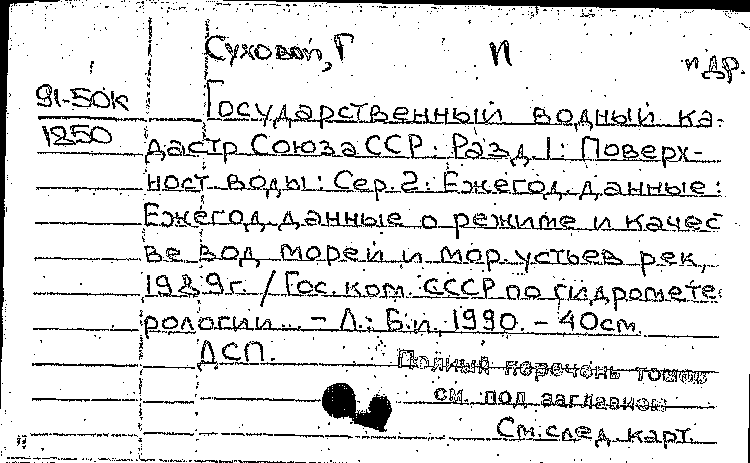 Суховой, Г П
и др.
91-50К
1250
Государственный водный ка-
дастр Союза ССР. Разд. 1: Поверх-
ност. воды: Сер. 2: Ежегод. данные:
Ежегод. данные о режиме и качес
ве вод морей и мор. устьев рек,
1989г. / Гос. ком. СССР по гидромете
рологии... – Л.: Б.и., 1990. – 40см.
ДСП.
Полный перечень томов
см. под заглавием
См. след. карт.